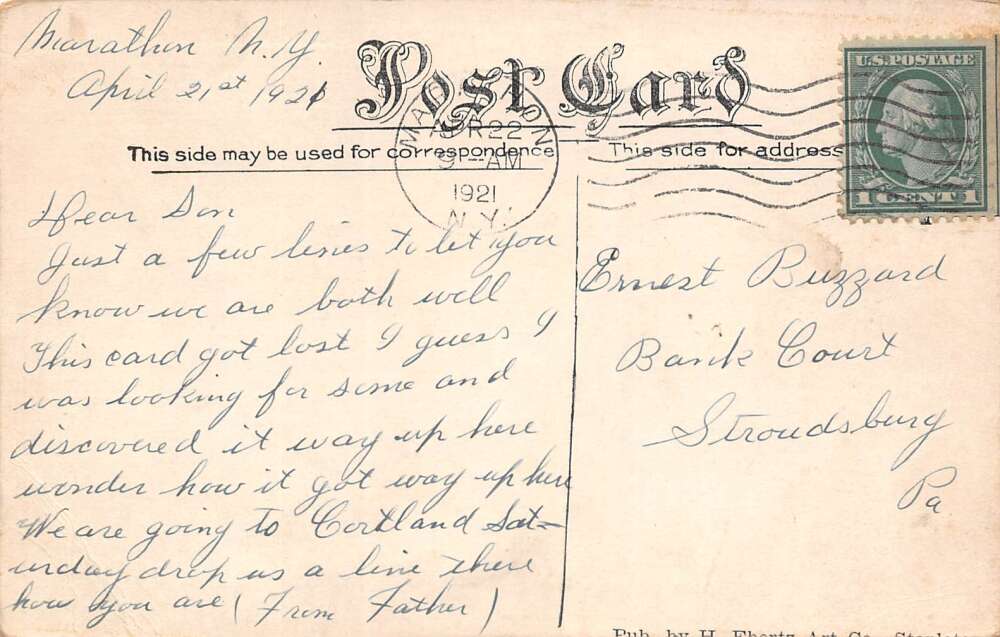 Marathon N.Y.
April 21st 1921
Post Card
MARATHON
APR 22
9-AM
1921
N.Y.
U.S. POSTAGE
1 CENT 1
This side may be used for correspondence
This side for address
Dear Son
Just a few lines to let you
know we are both well
This card got lost I guess I
was looking for some and
discovered it way up here
wonder how it got way up here
We are going to Cortland Sat-
urday drop us a line there
how you are (From Father)
Ernest Buzzard
Bank Court
Stroudsburg
Pa
Pub. by H. Ebertz Art Co.